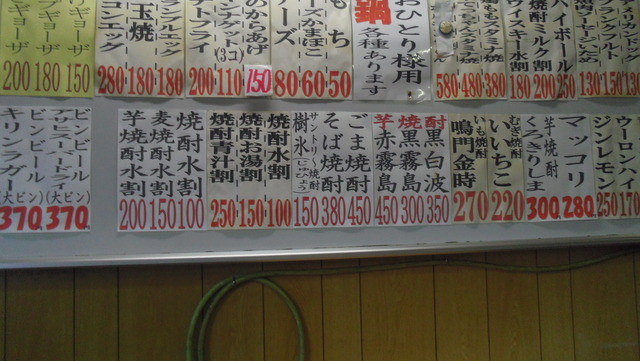 130
150
フランクフルト
130
ハイボール
250
焼酎ミルク割
200
ウイスキー水割
180
380
480
580
おひとり様用
鍋
各種あります
もち
50
ーズかまぼこ
60
ーズ
80
のからあげ
150
ンナゲット(3コ)
110
テトフライ
200
ランブルエッグ
180
玉焼
180
コンエッグ
280
ギョーザ
150
ブギョーザ
180
ギョーザ
200
ウーロンハイ
170
ジンレモン
250
マッコリ
280
芋焼酎
くろきりしま
300
むぎ焼酎
いいちこ
220
いも焼酎
鳴門金時
270
酎黒白波
350
焼黒霧島
300
芋赤霧島
450
ごま焼酎
450
そば焼酎
380
サントリー焼酎
樹氷(じゅひょう)
150
焼酎水割
100
焼酎お湯割
150
焼酎青汁割
250
焼酎水割
100
麦焼酎水割
150
芋焼酎水割
200
ビンビール
(大ビン)
370
ビンビール
キリンラガー
(大ビン)
370